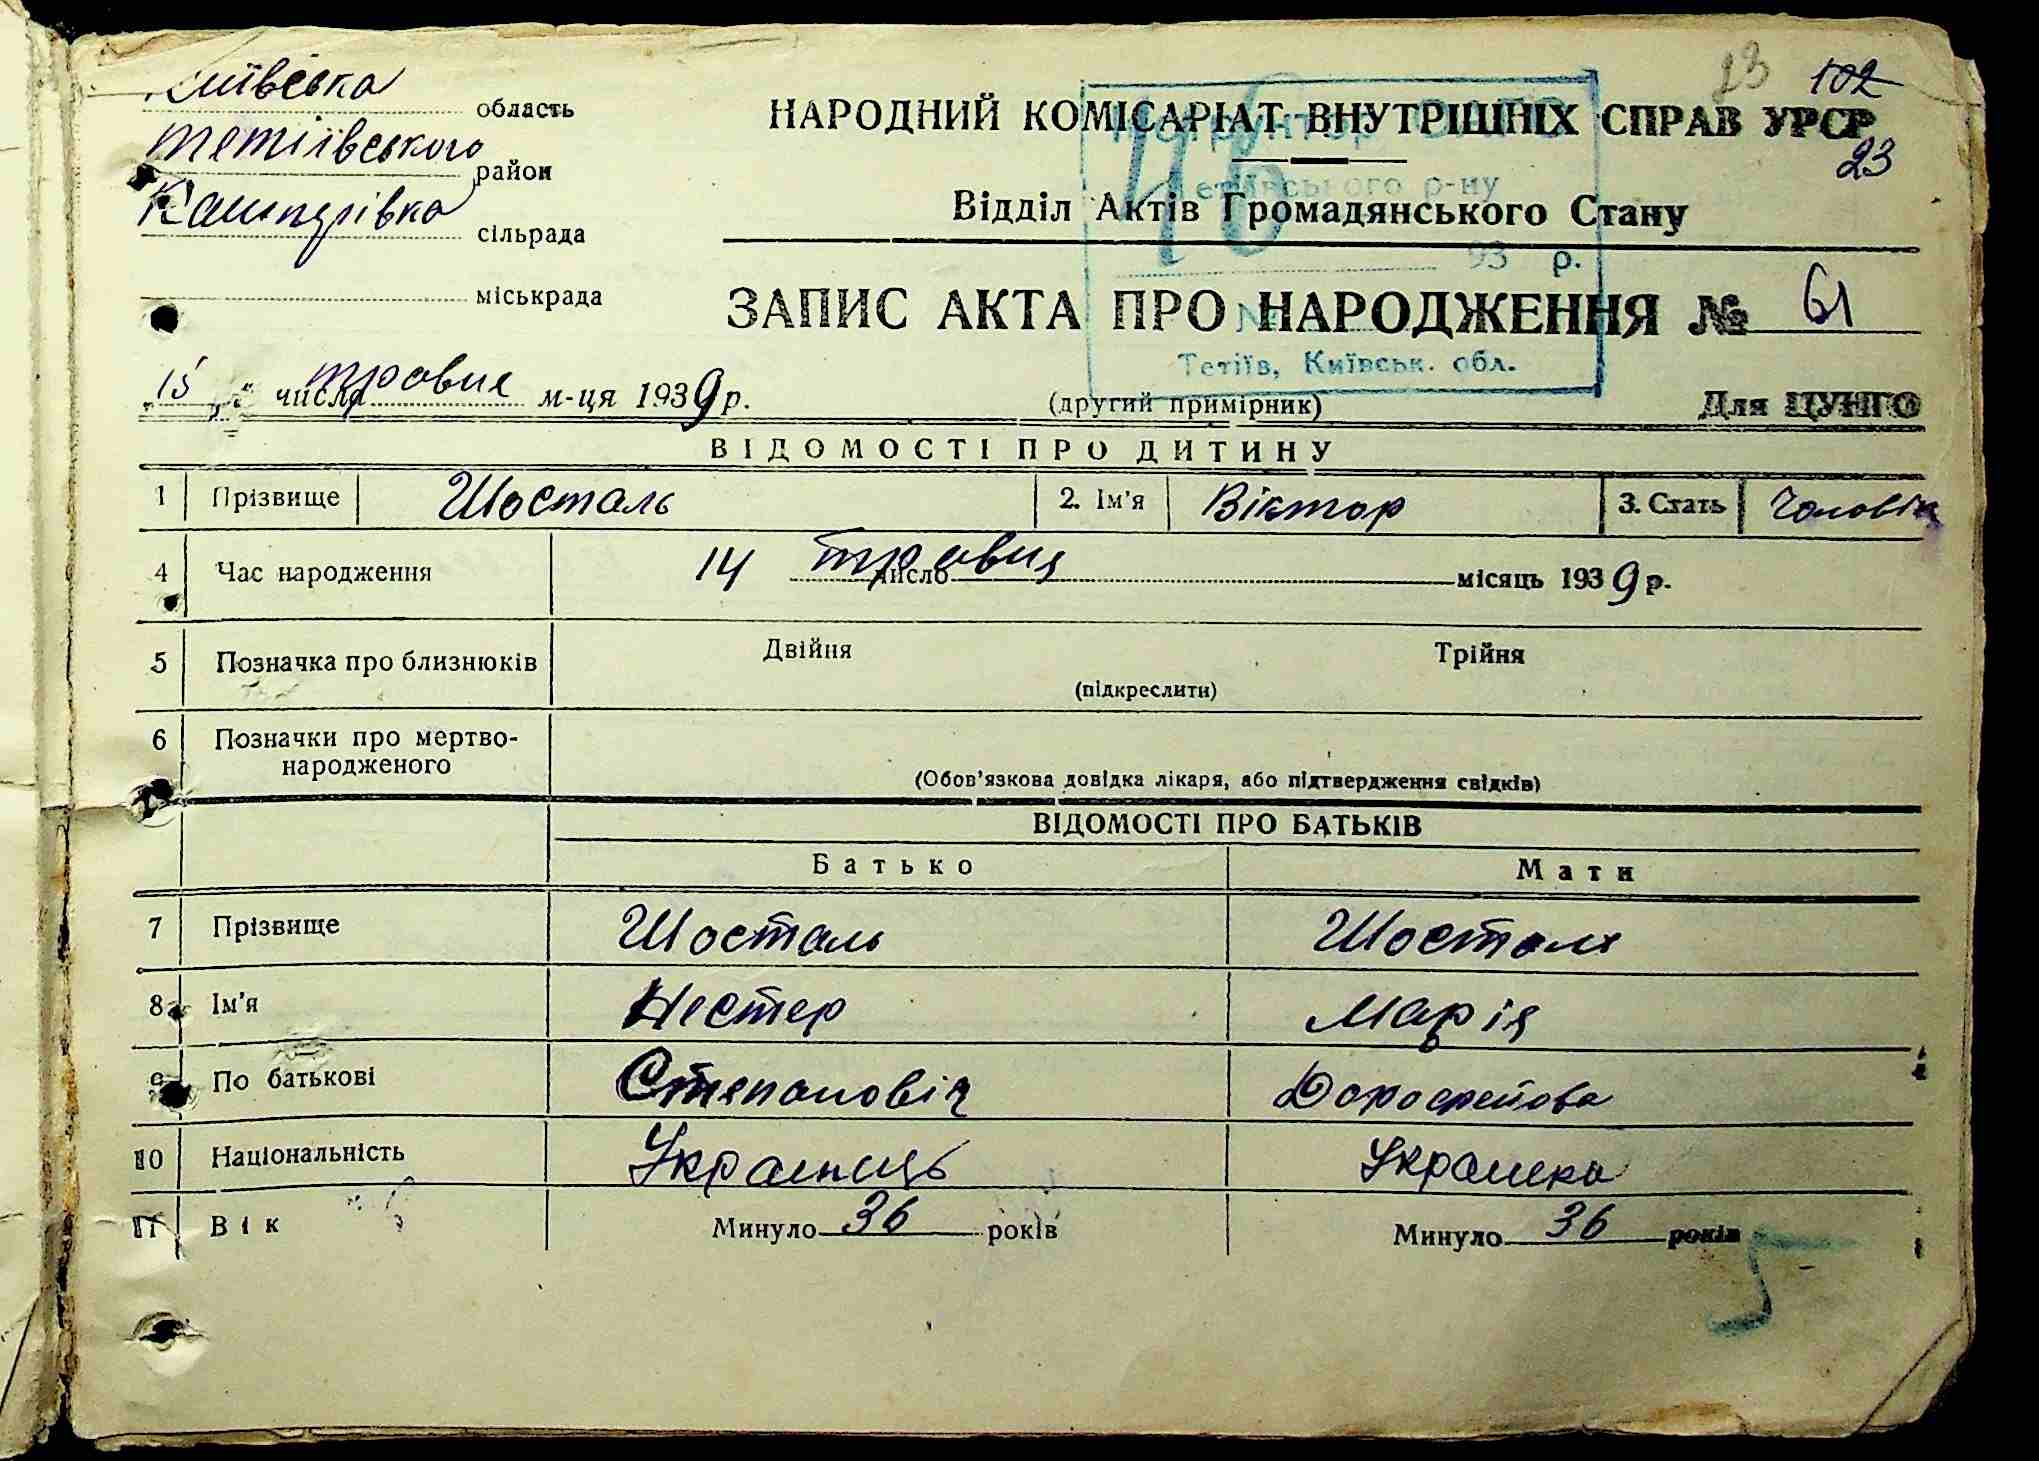 Київська область
тетіївського район
Кашперівка сільрада
міськрада
23 102
23
НАРОДНИЙ КОМІСАРІАТ ВНУТРІШНІХ СПРАВ УРСР
Тетіївського р-ну
Відділ Актів Громадянського Стану
46
193 р.
ЗАПИС АКТА ПРО НАРОДЖЕННЯ № 61
№
Тетіїв, Київськ. обл.
„15“ числа травня м-ця 1939 р.
(другий примірник)
Для ЦУНГО
ВІДОМОСТІ ПРО ДИТИНУ
1 Прізвище Шосталь 2. Ім'я Віктор 3. Стать Чоловіч
4 Час народження 14 число травня місяць 1939 р.
5 Позначка про близнюків Двійня Трійня
(підкреслити)
6 Позначки про мертво-
народженого
(Обов'язкова довідка лікаря, або підтвердження свідків)
ВІДОМОСТІ ПРО БАТЬКІВ
Батько Мати
7 Прізвище Шосталь Шосталь
8 Ім'я Нестер Марія
9 По батькові Степановіч Дорофейова
10 Національність Українець Українка
11 Вік Минуло 36 років Минуло 36 років
5